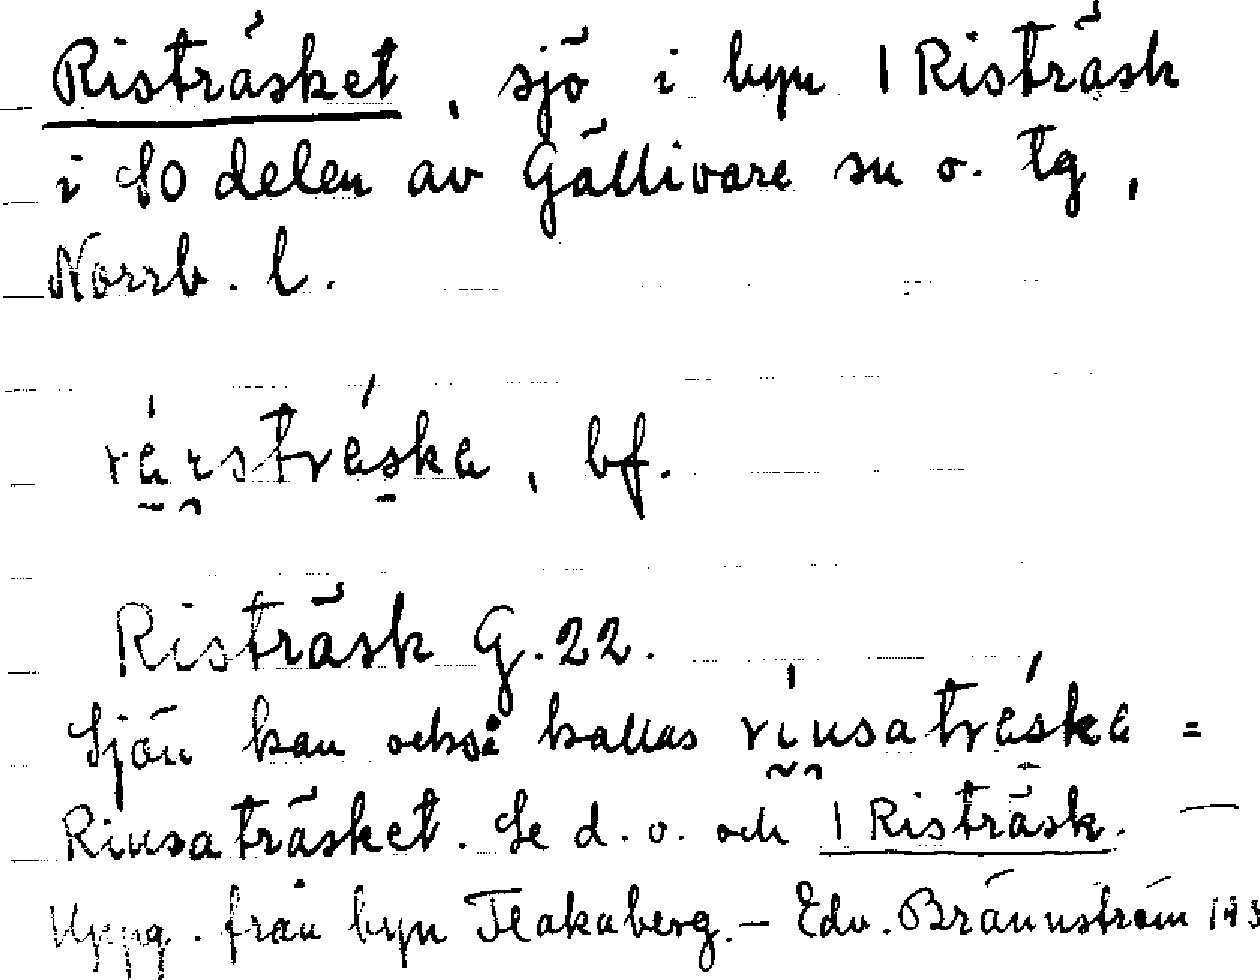 Risträsket, sjö i byn 1 Risträsk
i SO delen av Gällivare sn o. tg,
Norrb. l.
bf.
Risträsk G. 22.
Sjön kan också kallas =
Riusaträsket. Se d. o. och 1 Risträsk. —
Uppg. från byn Flakaberg. — Edv. Brännström